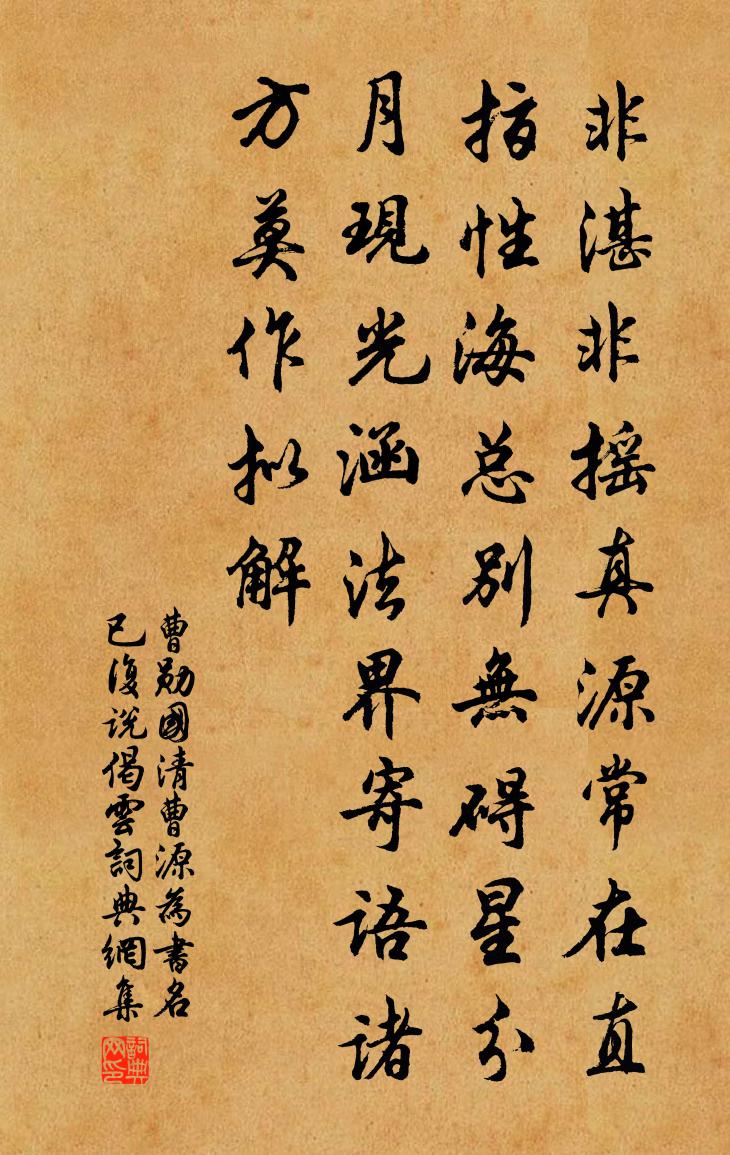 非湛非摇真源常在直
指性海总别無碍星分
月現光涵法界寄语诸
方莫作拟解
曹勋國清曹源為書名
已復説偈雲詞典網集
詞典
网印